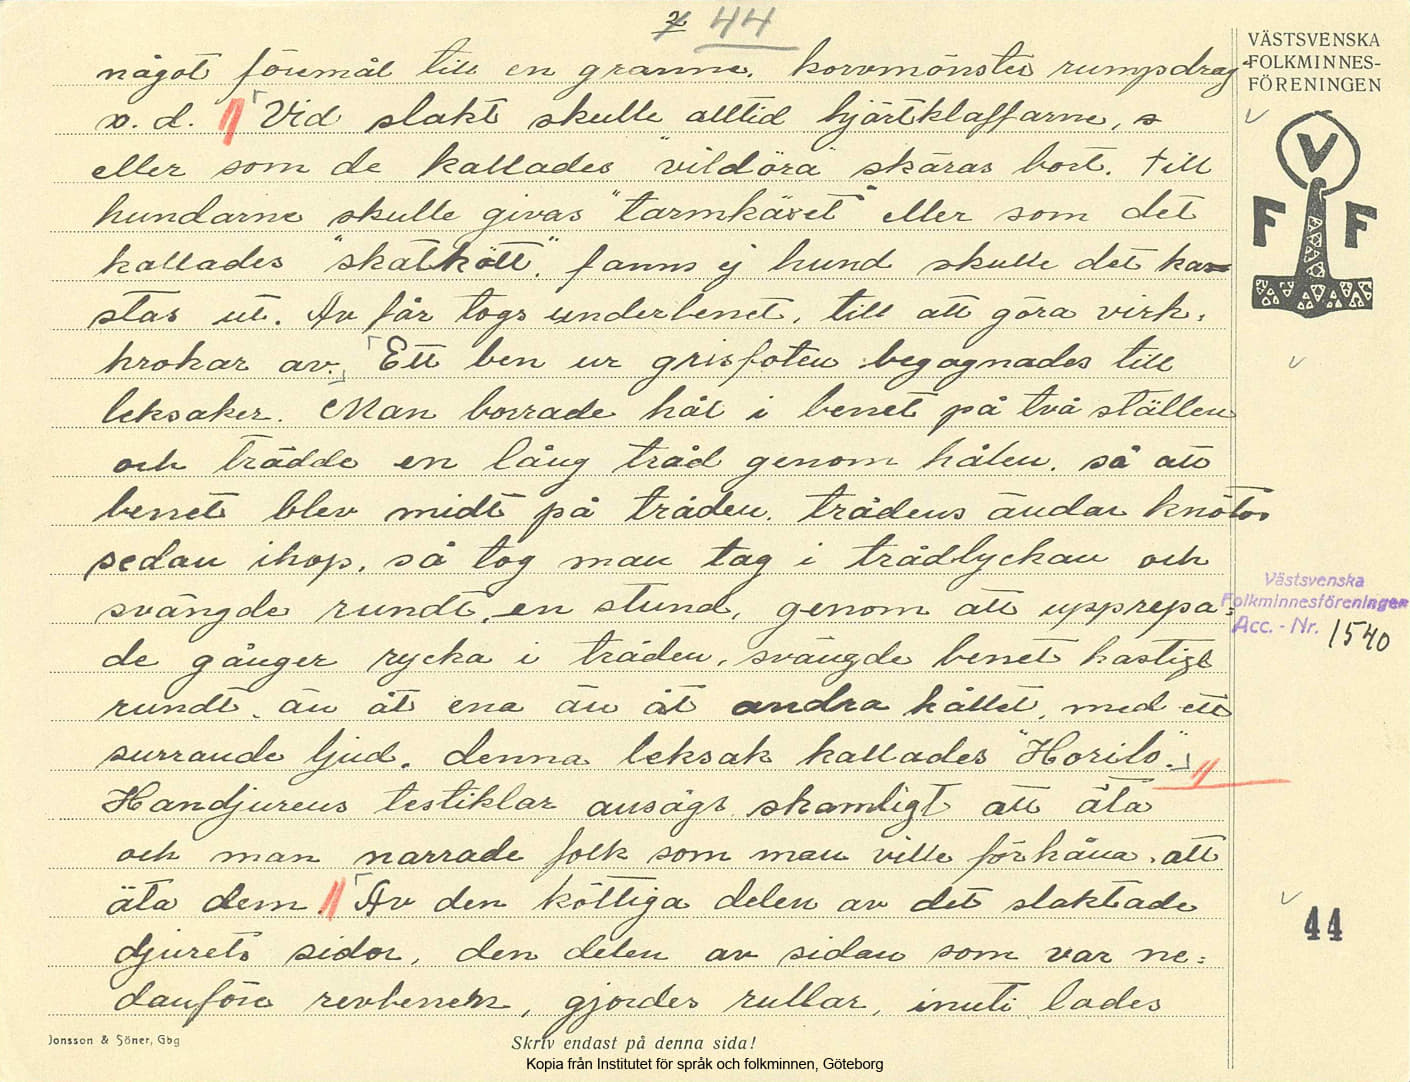 44
något föremål till en granne. korvmönster rumpdrag
o. d. Vid slakt skulle alltid hjärtklaffarne, s
eller som de kallades "vildöra" skäras bort. till
hundarne skulle givas "tarmkäxet" eller som det
kallades "skatkött". fanns ej hund skulle det kas=
stas ut. Av får togs underbenet, till att göra virk=
krokar av. Ett ben ur grisfoten begagnades till
leksaker. Man borrade hål i benet på två ställen
och trädde en lång tråd genom hålen. så att
benet blev midt på tråden. trådens ändar knöto
sedan ihop. så tog man tag i trådlyckan och
svängde rundt, en stund, genom att upprepa=
de gånger rycka i tråden, svängde benet hastigt
rundt. än åt ena än åt andra hållet, med ett
surrande ljud. denna leksak kallades "Horilo".
Handjurens testiklar ansågs skamligt att äta
och man narrade folk som man ville förhåna. att
äta dem. Av den köttiga delen av det slaktade
djurets sidor, den delen av sidan som var ne=
danföre revbenen, gjordes rullar, inuti lades
VÄSTSVENSKA
FOLKMINNES-
FÖRENINGEN
V
F F
Västsvenska
Folkminnesföreningen
Acc. - Nr. 1540
44
Jonsson & Söner, Gbg
Skriv endast på denna sida!
Kopia från Institutet för språk och folkminnen, Göteborg